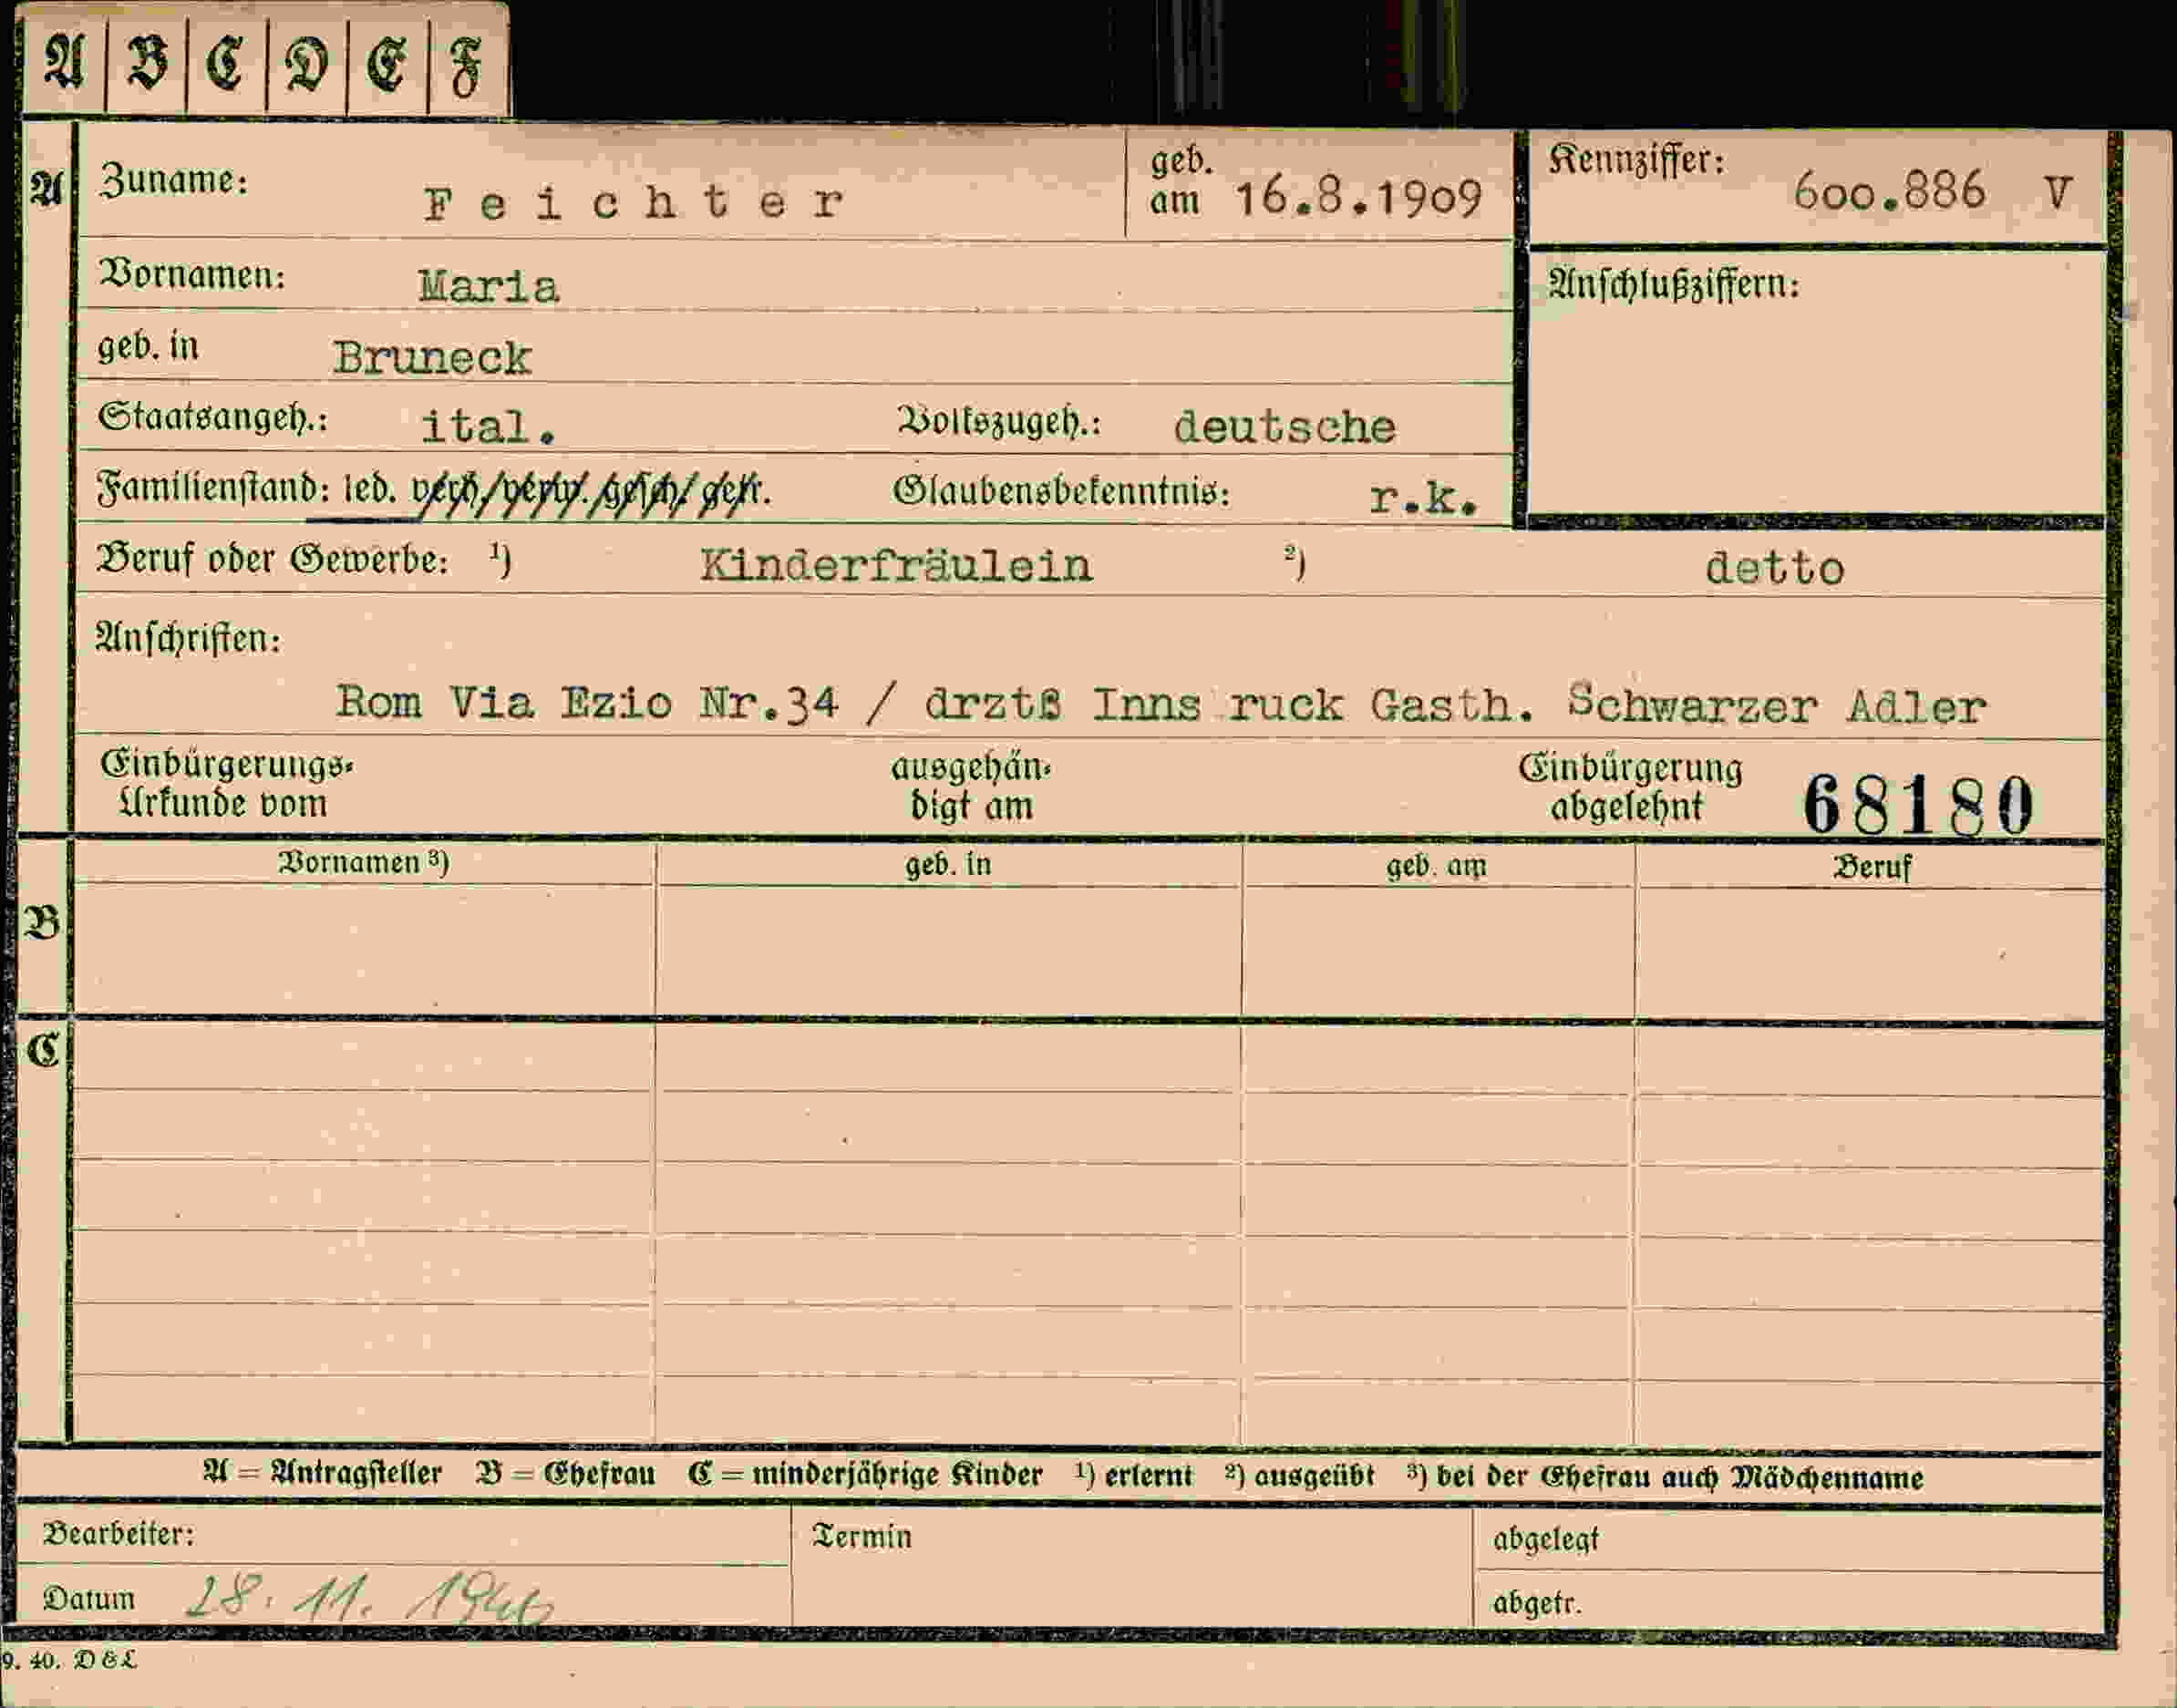 A B C D E F
A Zuname: Feichter geb. am 16.8.1909 Kennziffer: 600.886 V
Vornamen: Maria Anschlußziffern:
geb. in Bruneck
Staatsangeh.: ital. Volkszugeh.: deutsche
Familienstand: led. verh./verw./gesch./getr. Glaubensbekenntnis: r.k.
Beruf oder Gewerbe: ¹) Kinderfräulein ²) detto
Anschriften:
Rom Via Ezio Nr.34 / drztß Inns ruck Gasth. Schwarzer Adler
Einbürgerungs- ausgehän- Einbürgerung 68180
Urkunde vom digt am abgelehnt
Vornamen ³) geb. in geb. am Beruf
B
C
A = Antragsteller B = Ehefrau C = minderjährige Kinder ¹) erlernt ²) ausgeübt ³) bei der Ehefrau auch Mädchenname
Bearbeiter: Termin abgelegt
Datum 28. 11. 1940 abgetr.
9. 40. D & L